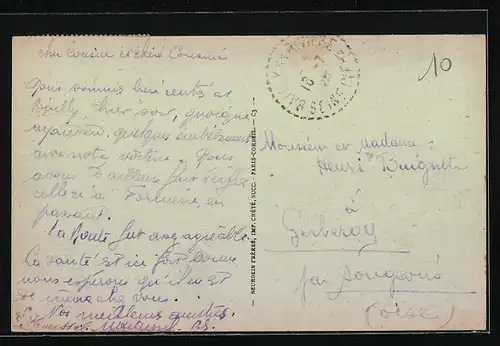 cher Cousin et chère Cousine
Nous sommes bien rentrés à
hier soir, quoique
ayant eu quelques embêtements
avec notre voiture. Nous
avons d'ailleurs fait régler
celle ci à Formerie en
passant.
La Route fut assez agréable.
La santé est ici fort bonne
nous espérons qu'il en est
de même chez vous.
Nos meilleures amitiés.
NEURDEIN FRÈRES, IMP. CRÉTÉ, SUCC. - PARIS-CORBEIL - C3
10
Monsieur et Madame
Henri Buignet
à
Gerberoy
par Songeons
(Oise)